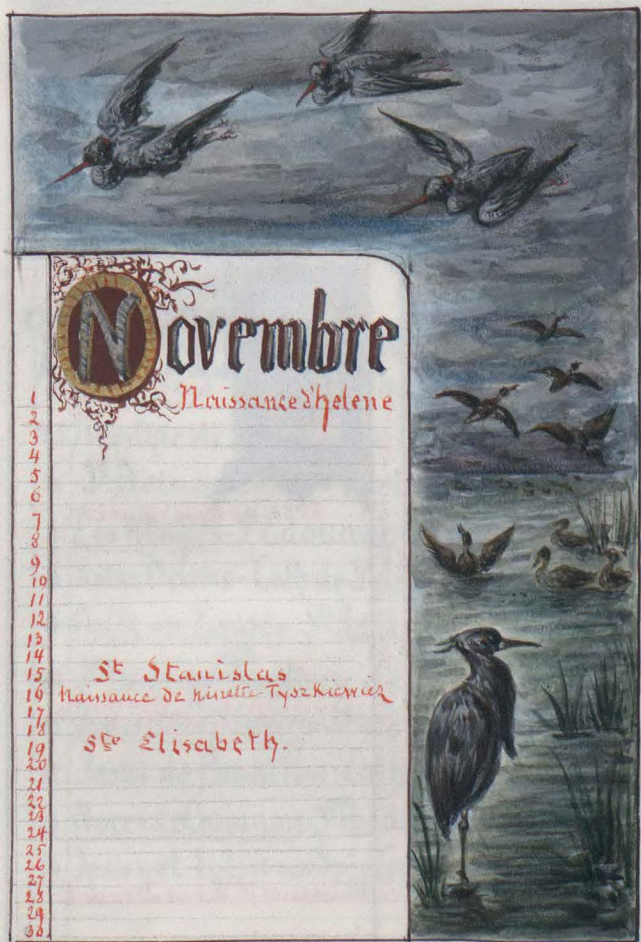 Novembre
1 Naissance d'helene
2
3
4
5
6
7
8
9
10
11
12
13
14
15 St Stanislas
16 Naissance de ninette Tyszkiewicz
17
18
19 Ste Elisabeth.
20
21
22
23
24
25
26
27
28
29
30